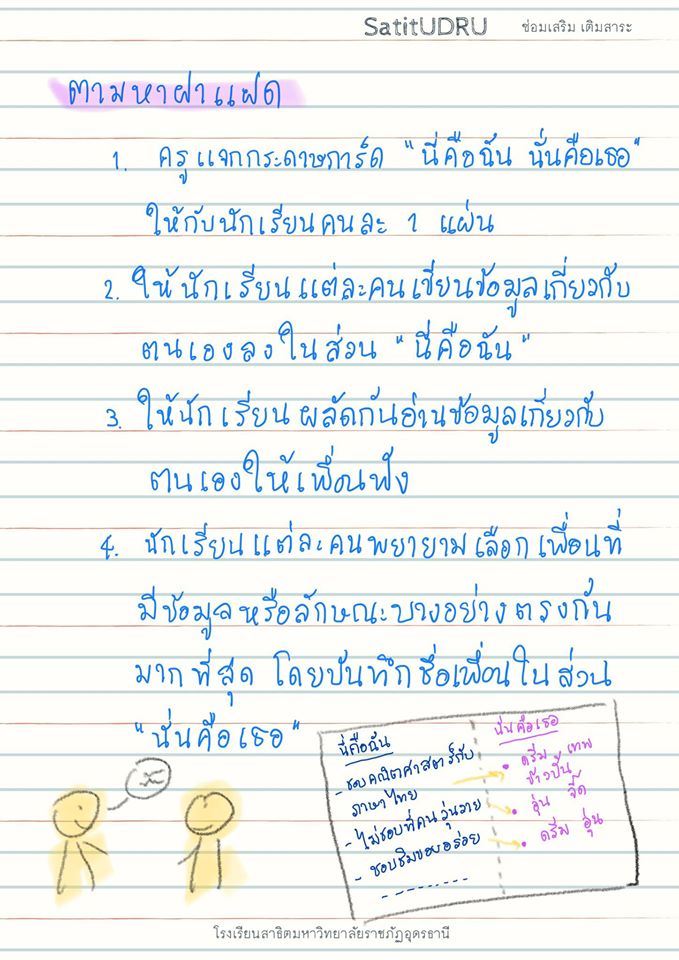 SatitUDRU ซ่อมเสริม เติมสาระ
ตามหาฝาแฝด
1. ครูแจกกระดาษการ์ด "นี่คือฉัน นั่นคือเธอ"
ให้กับนักเรียนคนละ 1 แผ่น
2. ให้นักเรียนแต่ละคนเขียนข้อมูลเกี่ยวกับ
ตนเองลงในส่วน "นี่คือฉัน"
3. ให้นักเรียนผลัดกันอ่านข้อมูลเกี่ยวกับ
ตนเองให้เพื่อนฟัง
4. นักเรียนแต่ละคนพยายามเลือกเพื่อนที่
มีข้อมูลหรือลักษณะบางอย่างตรงกัน
มากที่สุด โดยบันทึกชื่อเพื่อนในส่วน
"นั่นคือเธอ"
นี่คือฉัน
- ชอบคณิตศาสตร์กับ
ภาษาไทย
- ไม่ชอบที่คนวุ่นวาย
- ชอบชิมของอร่อย
- - - - - - - -
นั่นคือเธอ
• ดรีม เทพ
ข้าวปั้น
• อุ่น จี๊ด
• ดรีม อุ่น
โรงเรียนสาธิตมหาวิทยาลัยราชภัฏอุดรธานี